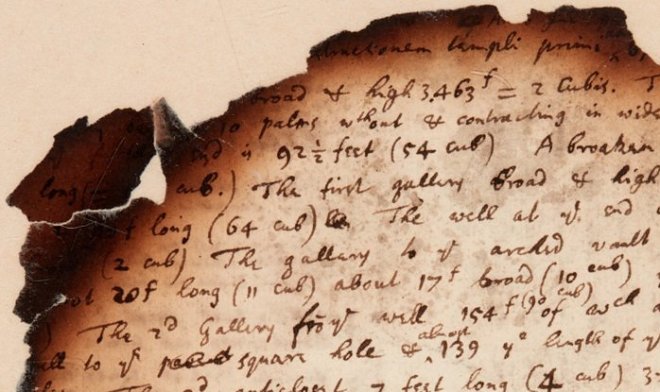 tructionem templi primi
broad & high 3,463f = 2 Cubits. T
10 palms wthout & contracting in wide
end is 92½ feet (54 cub) A broaken
long ( cub.) The first gallery broad & high
f long (64 cub) The well at ye end
(2 cub) The gallery to ye arched vault
ot 20f long (11 cub) about 17f broad (10 cub)
) The 2d Gallery frō ye well 154f (90 cub) of wch
ll to ye square hole & almost 139 ye length of y
The 3d 7 feet long (4 cub) 3